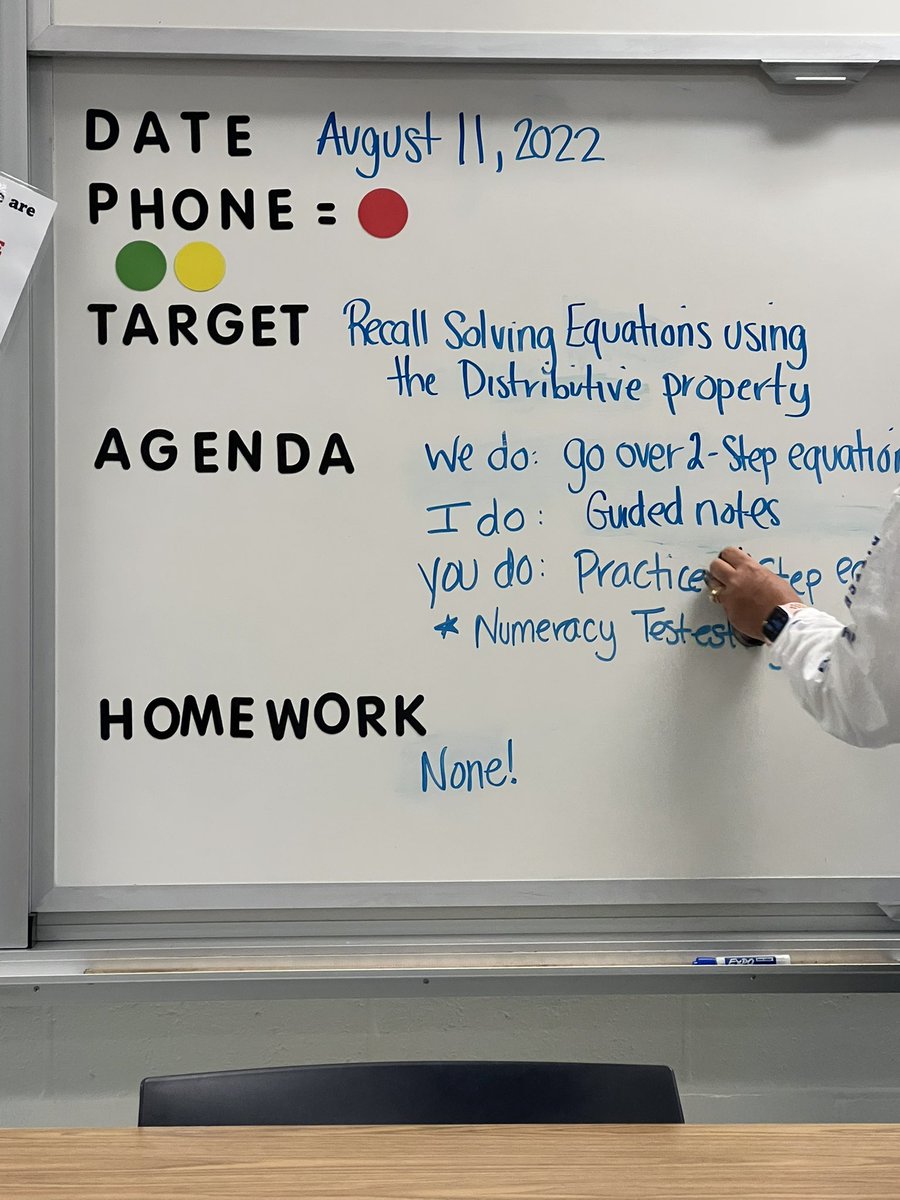 e are
DATE August 11, 2022
PHONE =
TARGET Recall Solving Equations using
the Distributive property
AGENDA We do: go over 2-Step equation
I do: Guided notes
you do: Practice Step eq
* Numeracy Testest
HOMEWORK
None!
EXPO